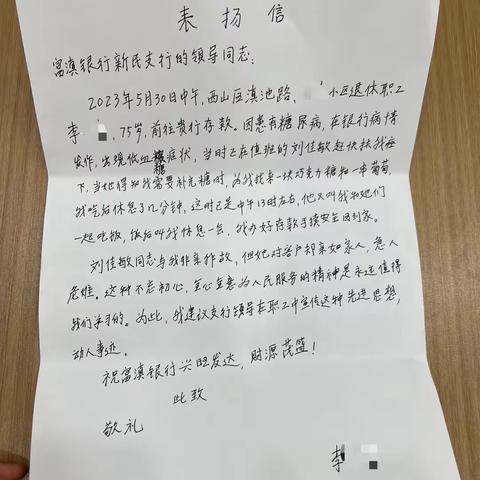 表扬信
富滇银行新民支行的领导同志:
2023年5月30日中午,西山区滇池路、小区退休职工
李,75岁,前往贵行存款。因患有糖尿病,在银行病情
发作,出现低血糖症状,当时正在值班的刘佳敏赶快扶我座
下,当她得知我需要补充糖时,为我找来一块巧克力糖和一串葡萄,
我吃后休息了几分钟,这时已是中午13时左右,他又叫我和她们
一起吃饭,饭后叫我休息一会,我办好存款手续安全回到家。
刘佳敏同志与我非亲非故,但她对客户却亲如家人,急人
危难。这种不忘初心,全心全意为人民服务的精神是永远值得
我们学习的。为此,我建议支行领导在职工中宣传这种先进思想,
动人事迹。
祝富滇银行兴旺发达,财源茂盛!
此致
敬礼
李